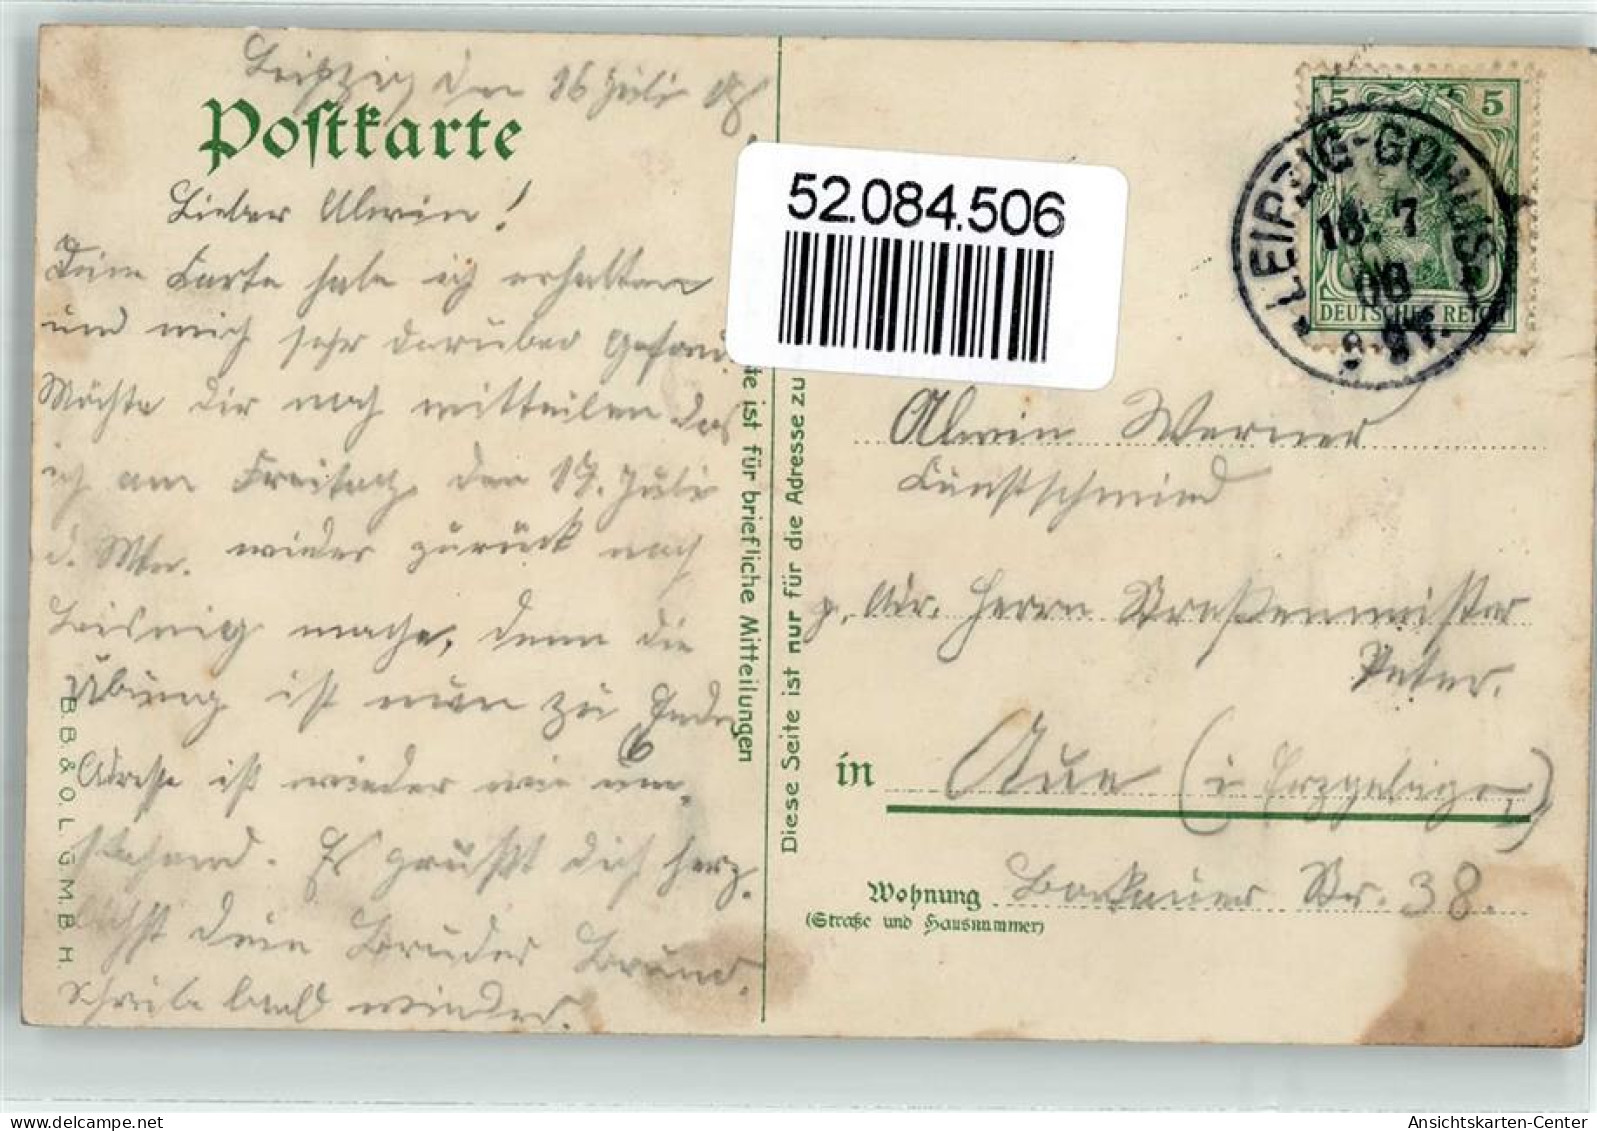 Leipzig den 16 Juli 08.
Postkarte
Lieber Alwin!
Deine Karte habe ich erhalten
und mich sehr darüber gefreut
Möchte dir noch mitteilen das
ich am Freitag den 17. Juli
d. Mn. wieder zurück nach
Leisnig mache, denn die
Übung ist nun zu Ende
Adresse ist wieder wie um-
stehend. Es grüßt dich herz-
lichst dein Bruder Bruno.
schreibe bald wieder.
B.B. & O. L. G. M. B. H.
te ist für briefliche Mitteilungen
Diese Seite ist nur für die Adresse zu
52.084.506
5 5
DEUTSCHES REICH
LEIPZIG-GOHLIS
16. 7
08
Alwin Werner
Kunstschmied
p. Adr. Herrn Straßenmeister
Peter.
in Aue (i Erzgebirge)
Wohnung Bockauer Str. 38.
(Straße und Hausnummer)
AnsichtsKarten-Center